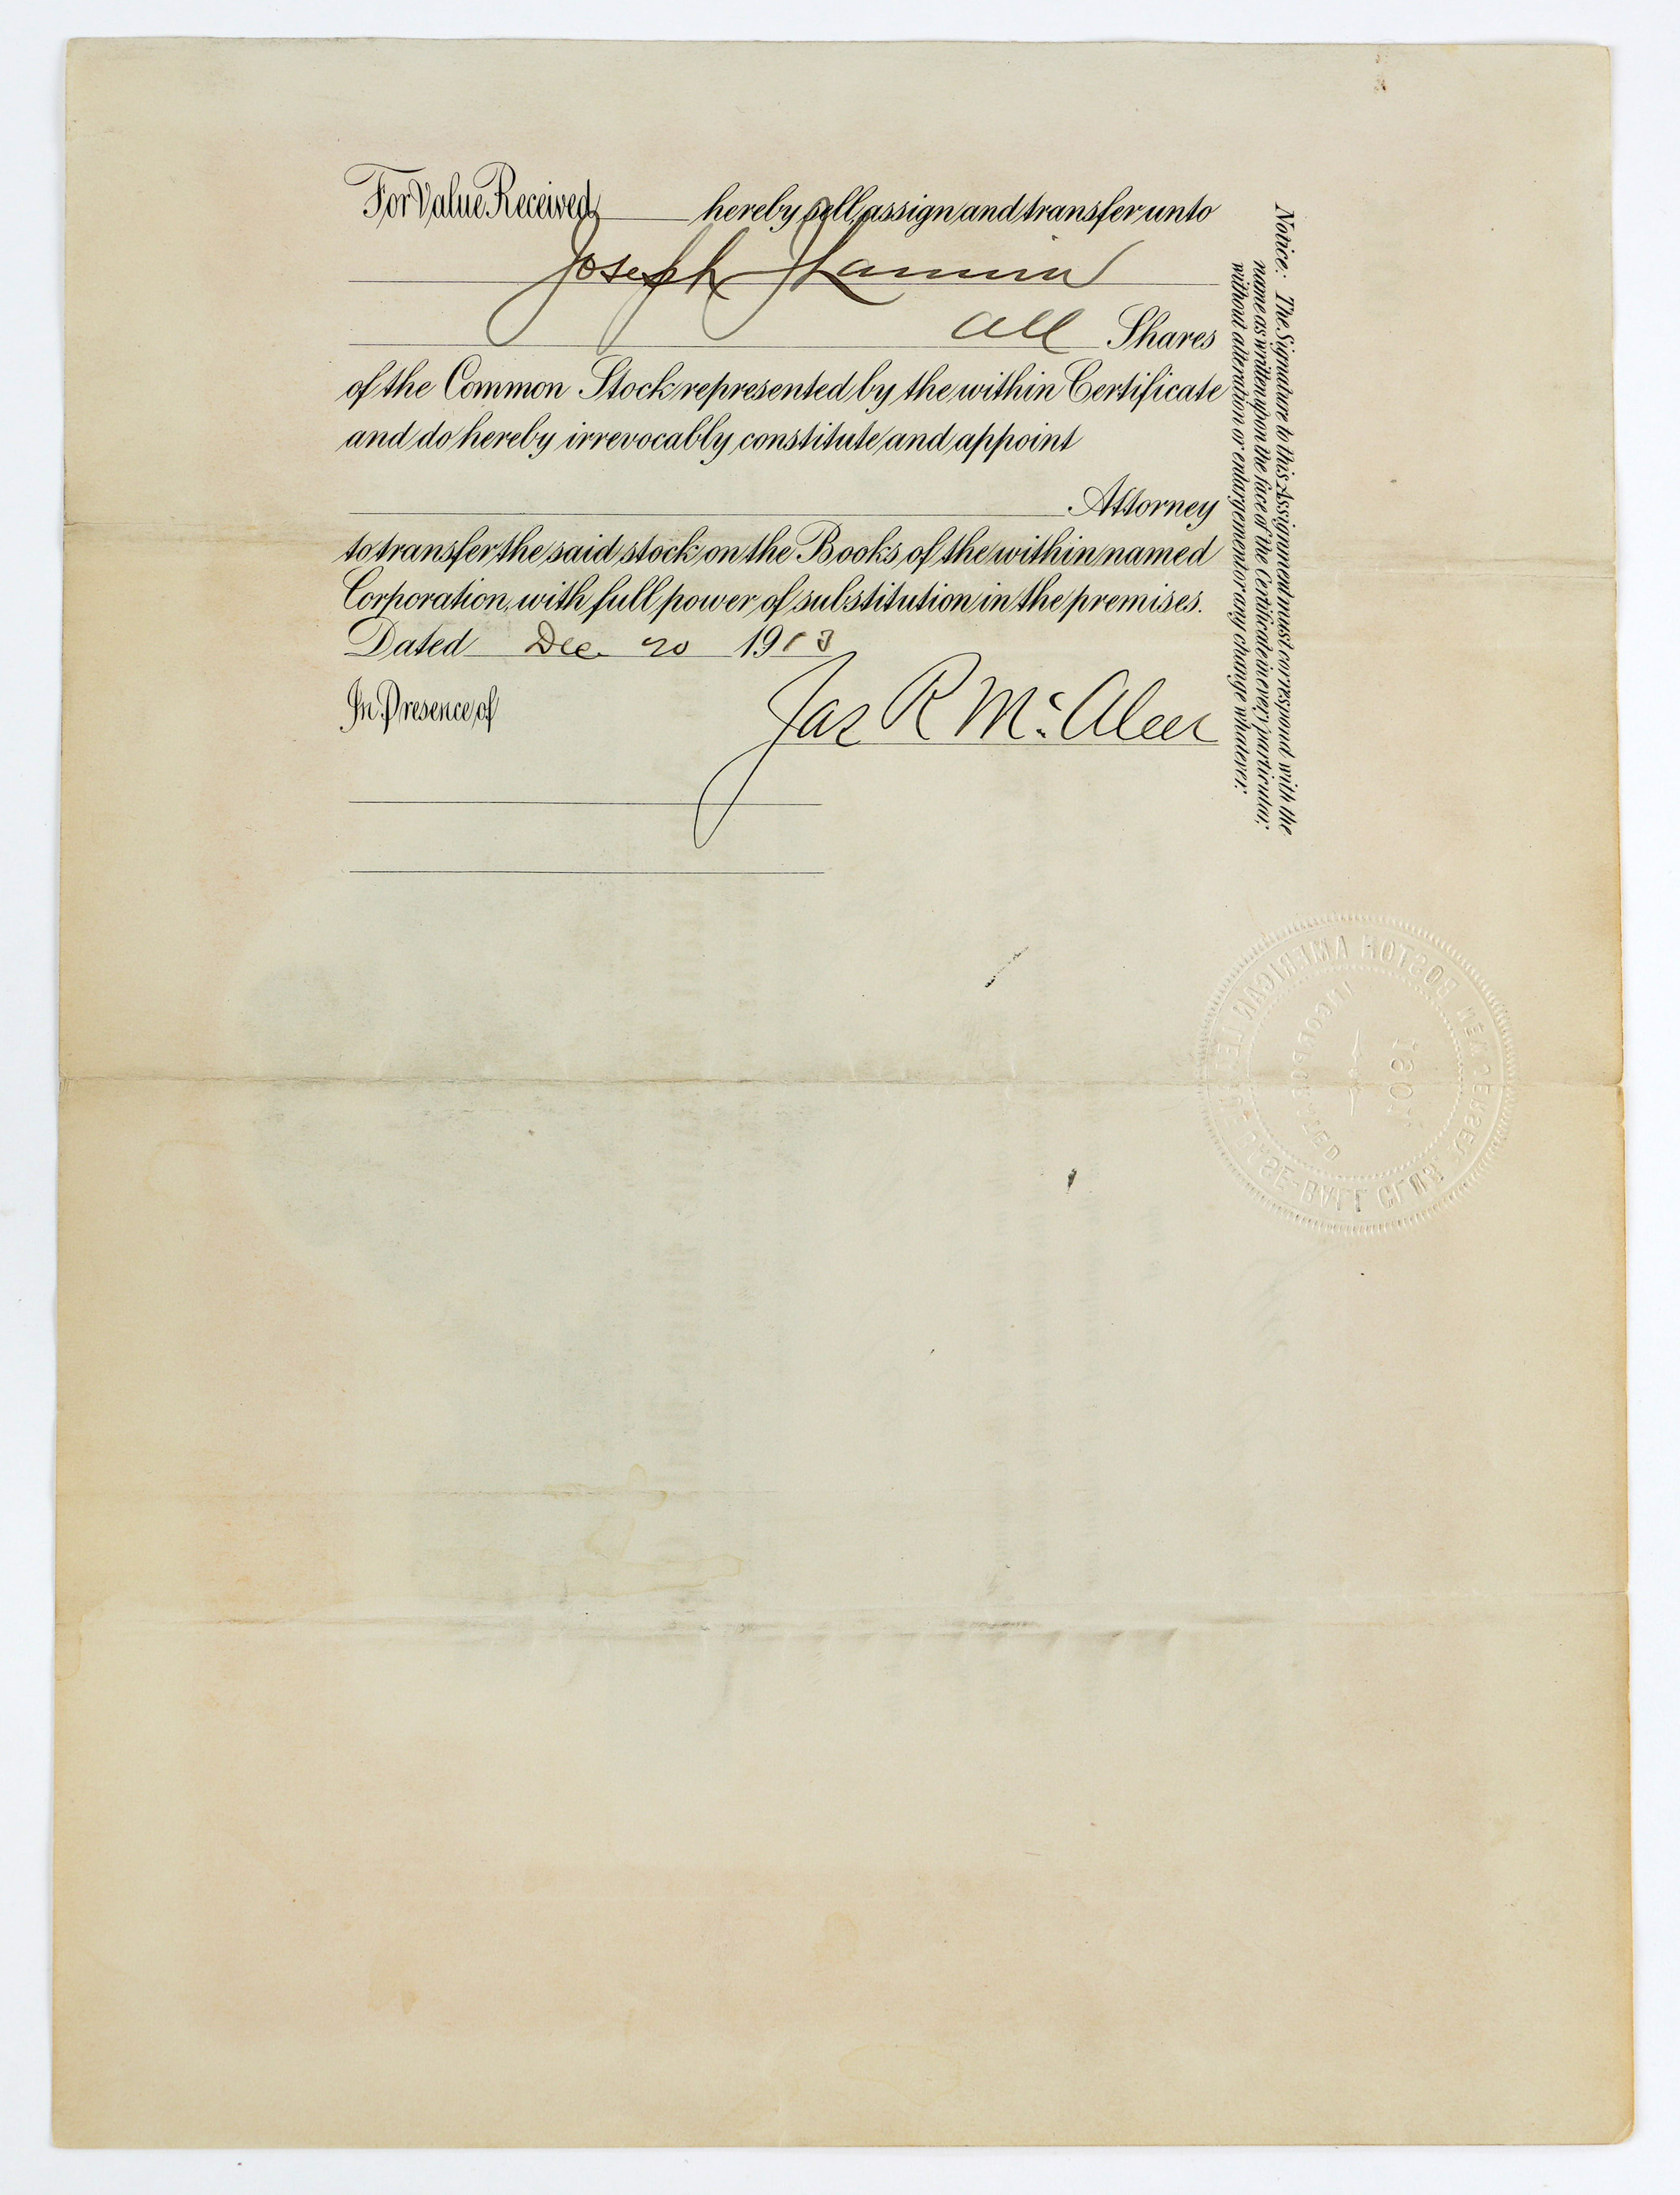 For Value Received, hereby sell, assign and transfer unto
Joseph J Lannin
all Shares
of the Common Stock represented by the within Certificate
and do hereby irrevocably constitute and appoint
Attorney
to transfer the said stock on the Books of the within named
Corporation, with full power of substitution in the premises.
Dated Dec 20 1913
In Presence of
Jas R McAleer
Notice: The Signature to this Assignment must correspond with the
name as written upon the face of the Certificate in every particular,
without alteration or enlargement or any change whatever.
BOSTON AMERICAN LEAGUE BASE-BALL CLUB
NEW JERSEY
INCORPORATED